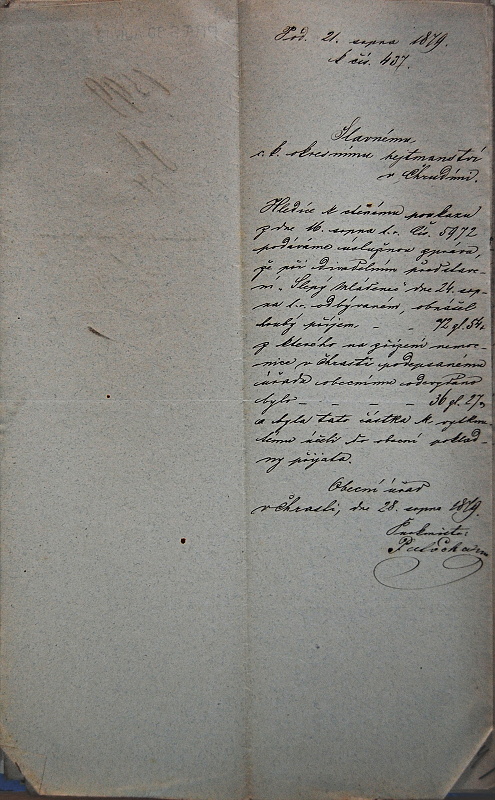 Pod. 21. srpna 1879.
k čís. 437.
Slavnému
c. k. okresnímu hejtmanství
v Chrudimi.
Hledíc k ctěnému poukazu
z dne 16. srpna t. r. čís. 5972
podáváme úslužnou zprávu,
že při divadelním představe-
ní „Slepý mládenec“ dne 24. srp-
na t. r. odbývaném, obnášel
hrubý příjem - - 72 zl. 54
z kterého na zřízení nemoc-
nice v Chrasti podepsanému
úřadu obecnímu odevzdáno
bylo - - - - 36 zl. 27
a byla tato částka k vytknu-
tému účeli do obecní poklad-
ny přijata.
Obecní úřad
v Chrasti, dne 28. srpna 1879.